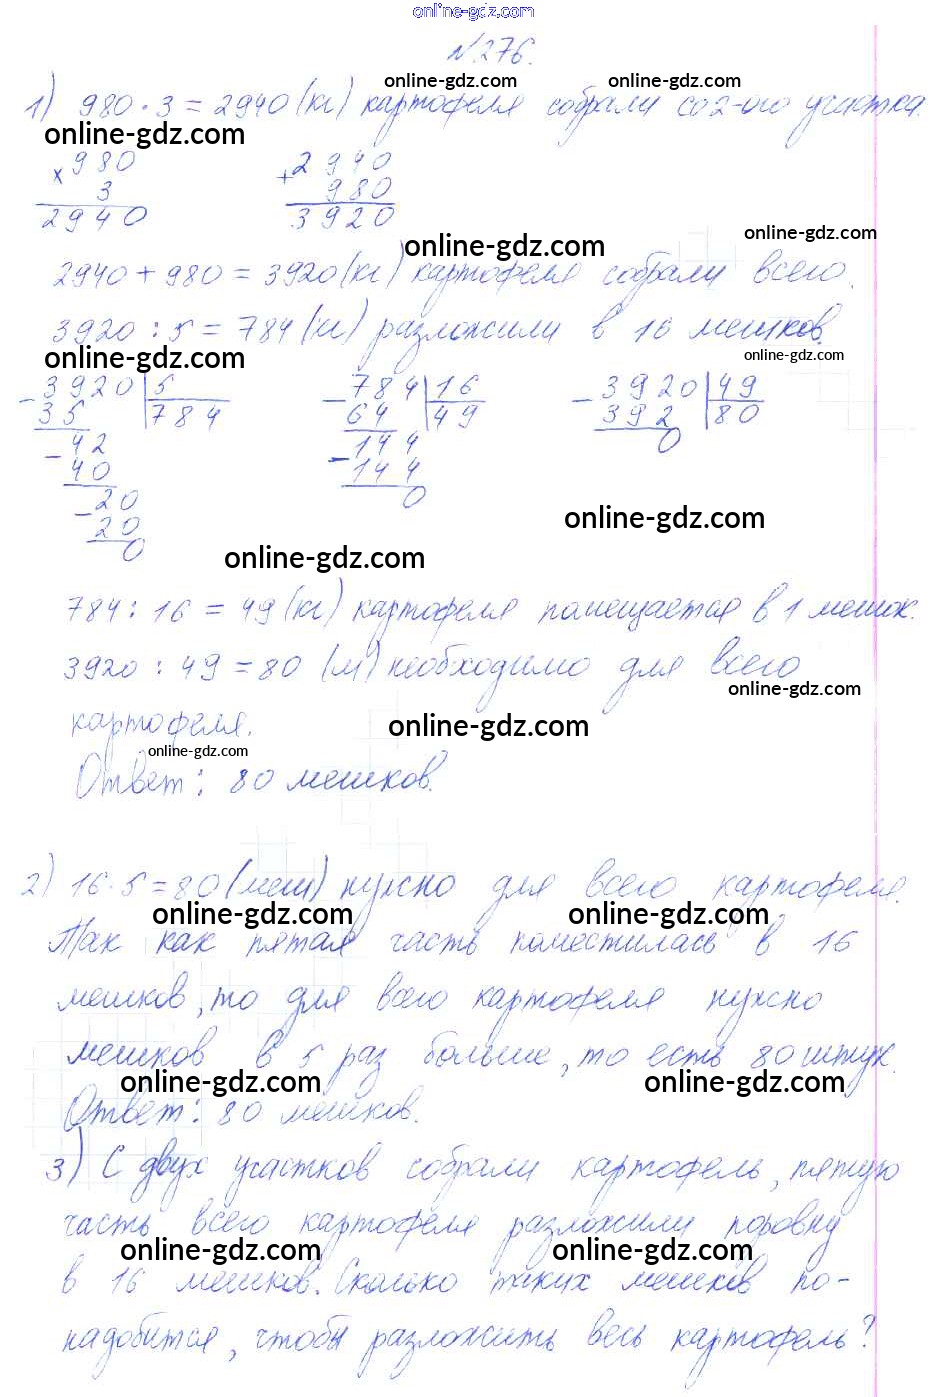 online-gdz.com
№276.
online-gdz.com online-gdz.com
1) 980·3=2940(кг) картофеля собрали со 2-ого участка.
online-gdz.com
× 980 + 2940
3 980
2940 3920
online-gdz.com
online-gdz.com
2940+980=3920(кг) картофеля собрали всего.
3920:5=784(кг) разложили в 16 мешков.
online-gdz.com online-gdz.com
- 3920 | 5 - 784 | 16 - 3920 | 49
35 784 64 49 392 80
- 42 - 144 0
40 144
- 20 0
20
0
online-gdz.com
online-gdz.com
784:16=49(кг) картофеля помещается в 1 мешок.
3920:49=80 (м) необходимо для всего
online-gdz.com
картофеля.
online-gdz.com
online-gdz.com
Ответ: 80 мешков.
2) 16·5=80(меш) нужно для всего картофеля.
online-gdz.com online-gdz.com
Так как пятая часть поместилась в 16
мешков, то для всего картофеля нужно
мешков в 5 раз больше, то есть 80 штук.
online-gdz.com online-gdz.com
Ответ: 80 мешков.
3) С двух участков собрали картофель, пятую
часть всего картофеля разложили поровну
online-gdz.com online-gdz.com
в 16 мешков. Сколько таких мешков по-
надобится, чтобы разложить весь картофель?